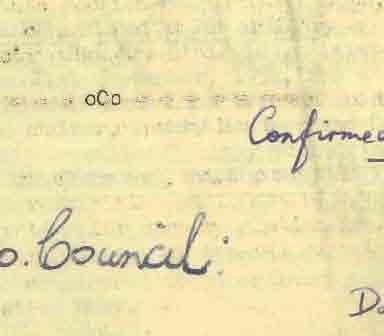 oCo
Confirmed
o. Council.
Da